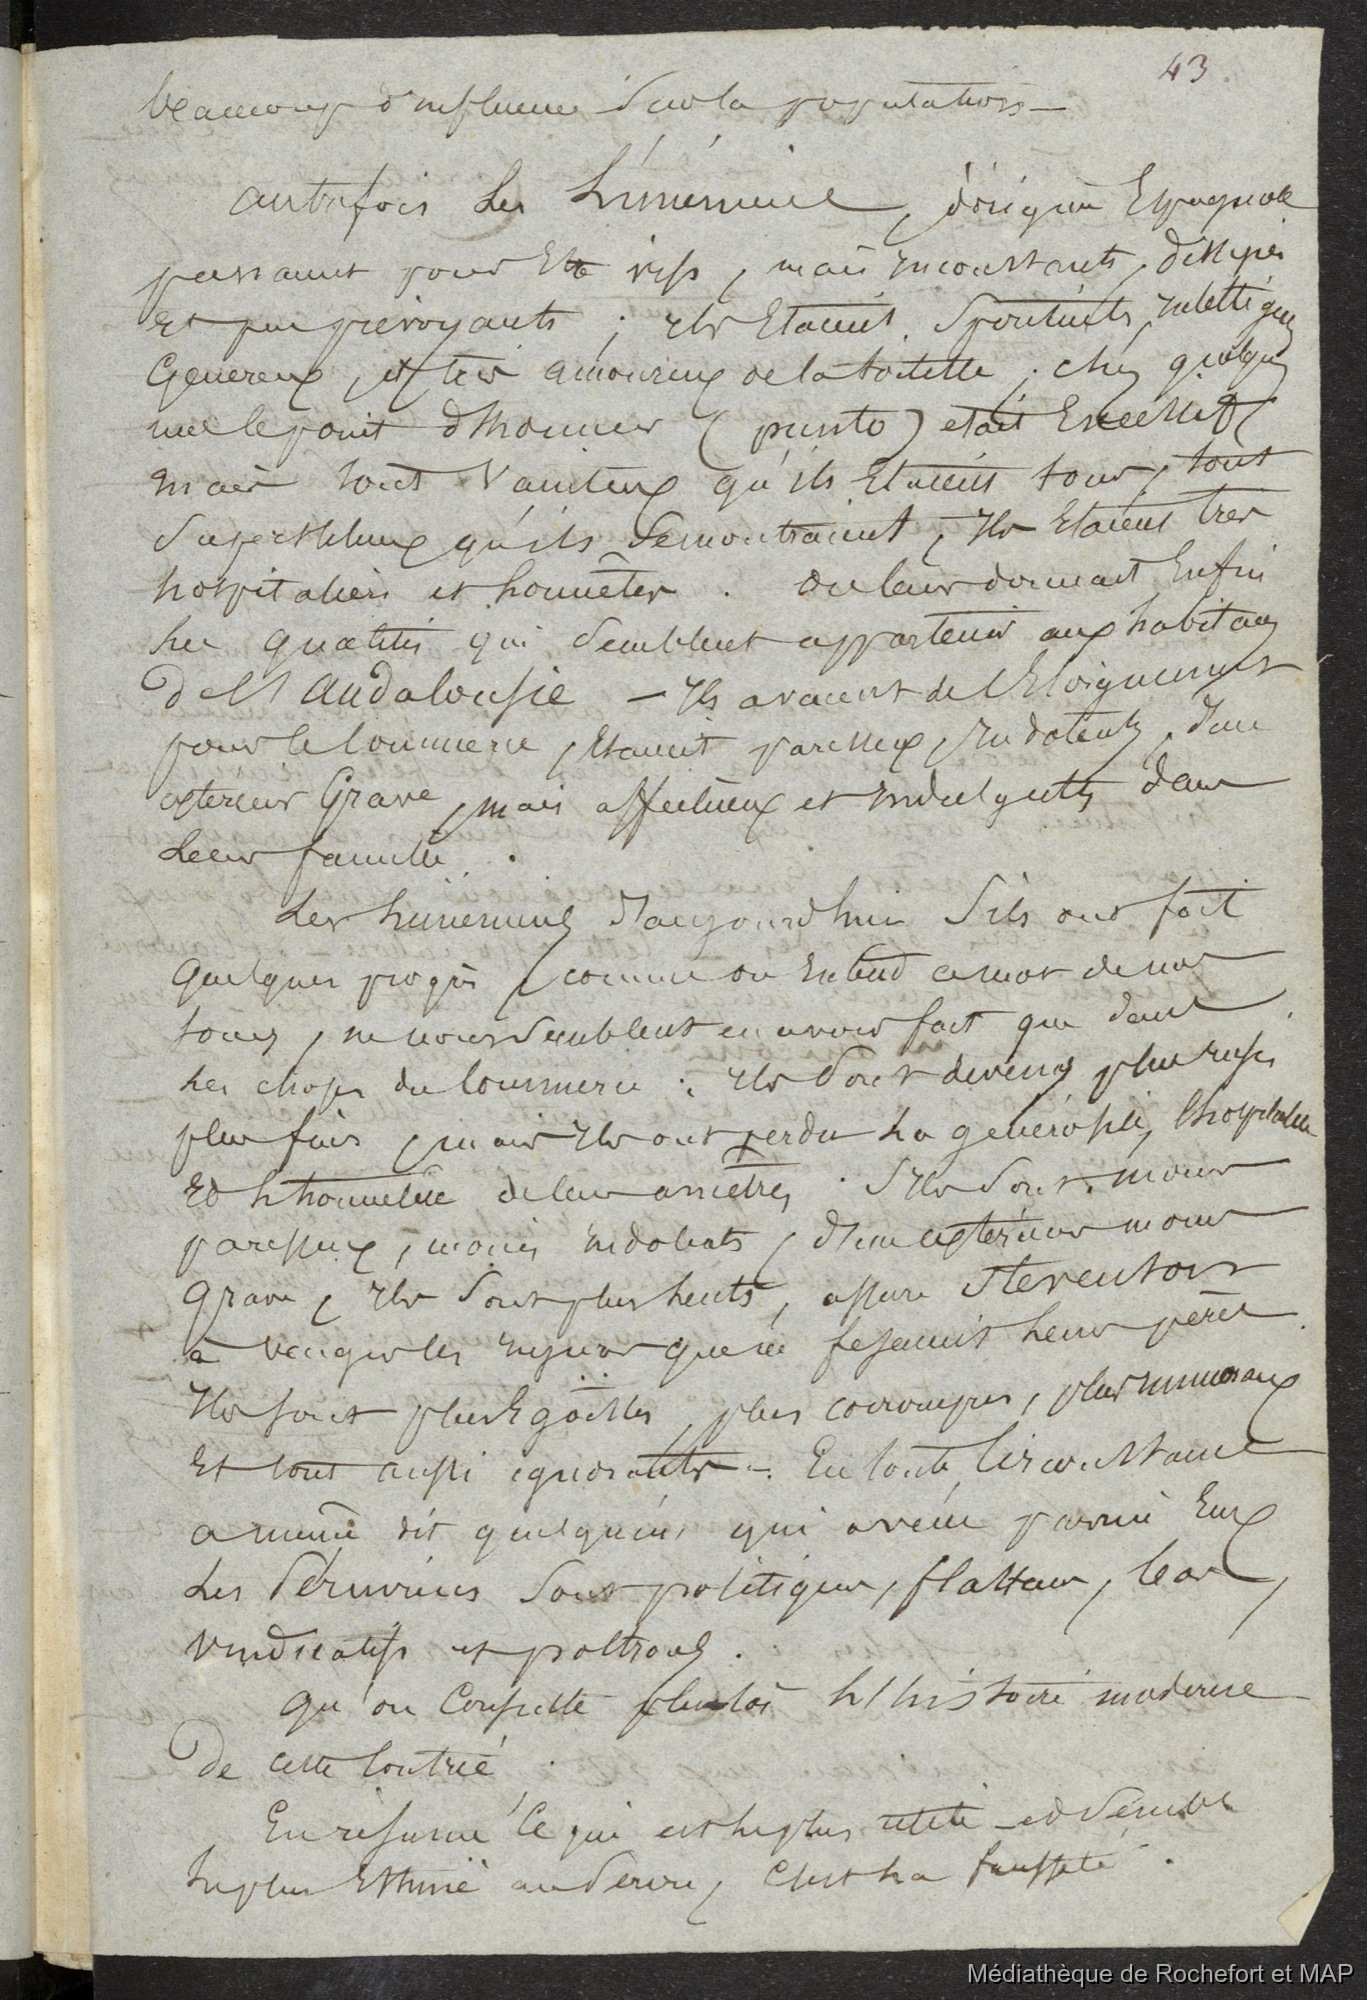 43.
beaucoup d'influence sur la population —
autrefois les Liméniens, d'origine Espagnole
passaient pour Etre vifs, mais inconstants, dissipés
et peu prévoyants ; ils Etaient spirituels,
Généreux, et très amoureux de la toilette ; chez quelques
uns le point d'honneur (punto) etait Excessif
mais tout vaniteux qu'ils Etaient tous, tout
superstitieux qu'ils se montraient, ils Etaient tres
hospitaliers et honnêtes. On leur donnait Enfin
les qualités qui semblent appartenir aux habitans
de l'andalousie — Ils avaient de l'Eloignement
pour le commerce, Etaient paresseux, indolents, d'un
extérieur Grave, mais affectueux et indulgents dans
leur famille.
Les Liméniens d'aujourdhui s'ils ont fait
quelques progrès, comme on entend ce mot de nos
jours, ne nous semblent en avoir fait que dans
les choses du commerce : ils sont devenus plus rusés
plus fins, mais ils ont perdu la générosité, l'hospitalité
Et l'honnêteté de leurs ancêtres. S'ils sont moins
paresseux, moins indolents, d'un extérieur moins
grave, ils sont plus lents, assure Stevenson
à venger les injures que ne fesaient leurs pères.
Ils sont plus Egoïstes, plus corrompus, plus immoraux
Et tout aussi ignorants. En toute Circonstance
a même dit quelqu'un qui a vécu parmi Eux
Les Péruviens sont politiques, flatteurs, bas,
vindicatifs et poltrons.
Qu'on Consulte plutôt l'histoire moderne
De cette Contrée.
En résumé Ce qui est le plus utile et semble
le plus Estimé au Pérou, c'est la fausseté.
Médiathèque de Rochefort et MAP